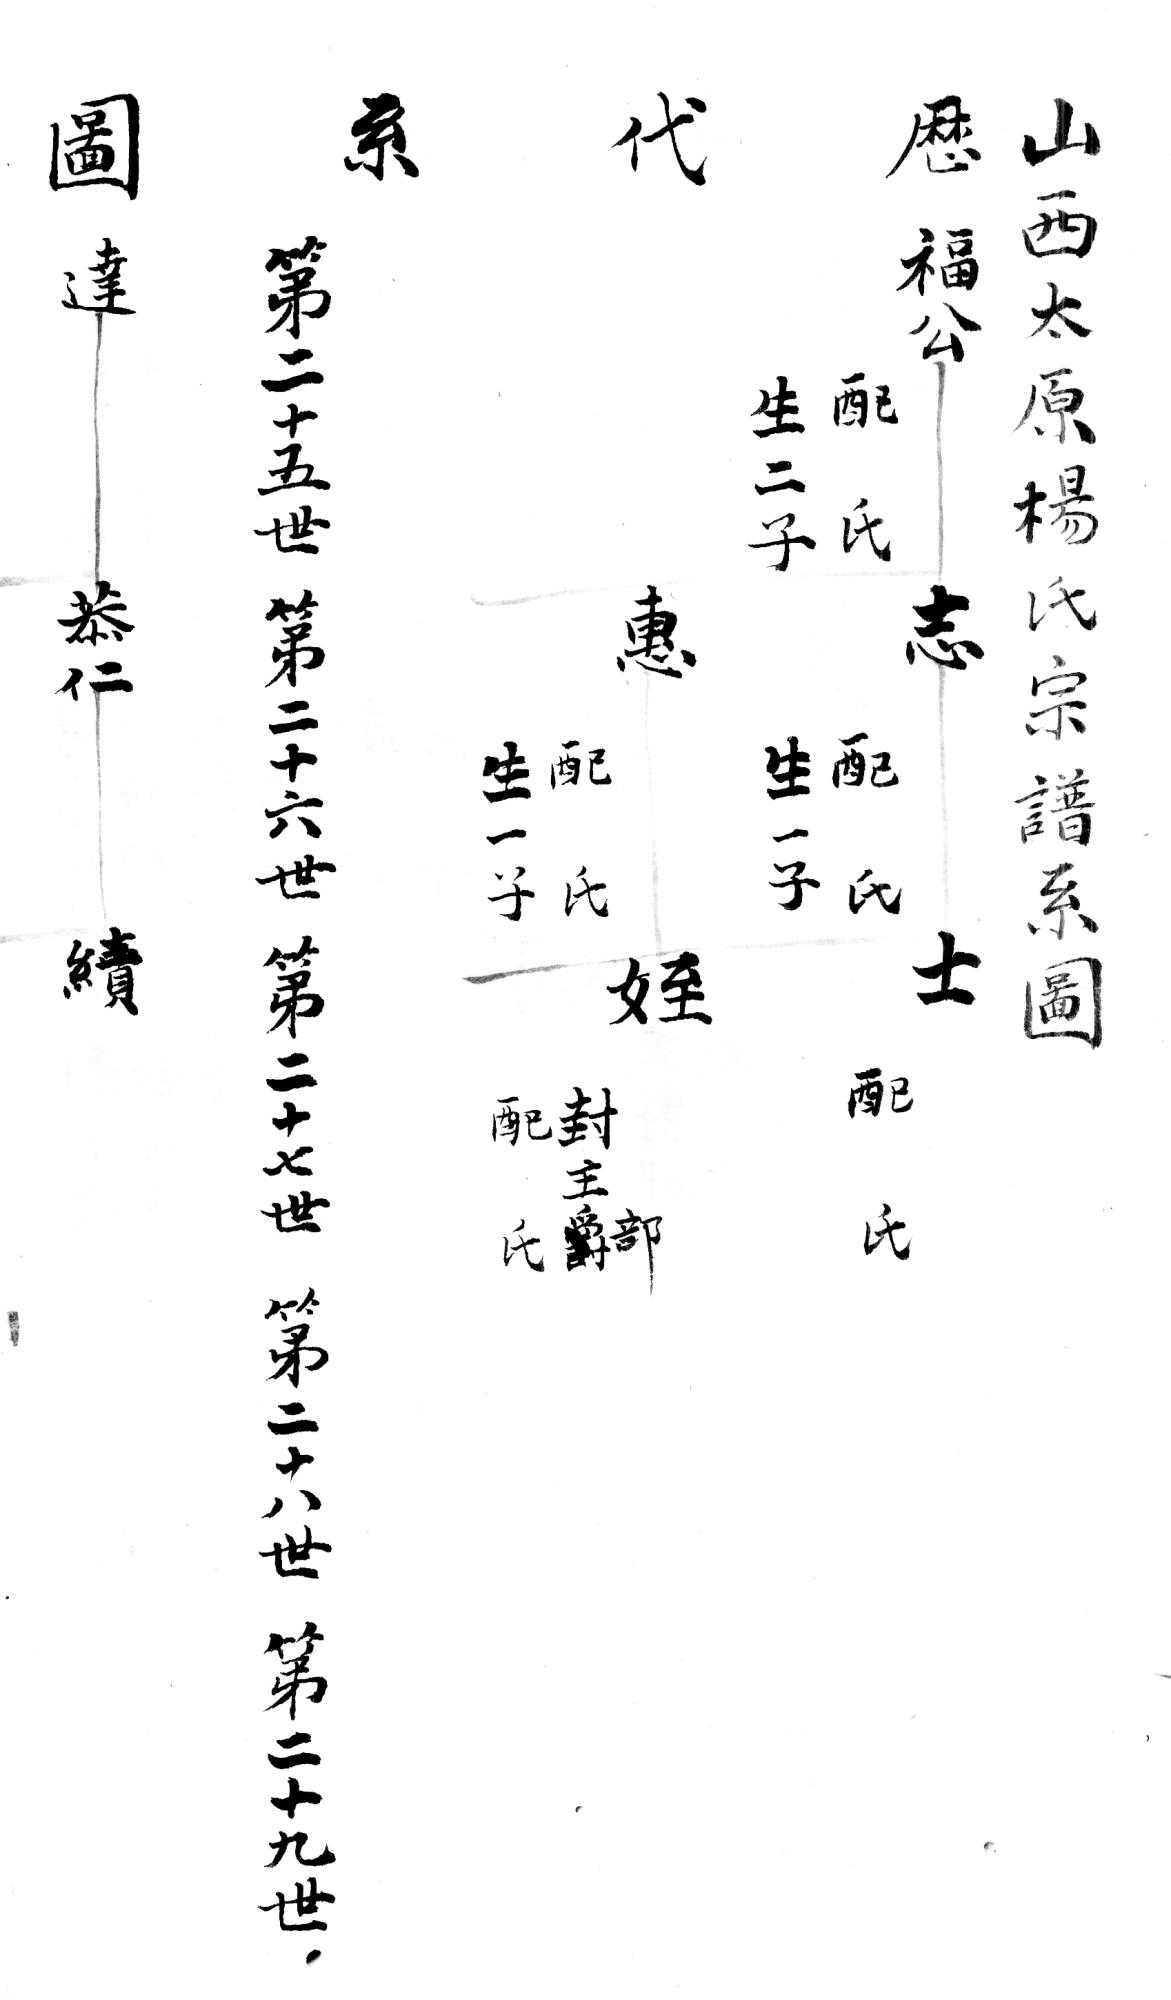 山西太原楊氏宗譜系圖
歷代系圖
福公
配氏
生二子
志
配氏
生一子
士
配氏
惠
配氏
生一子
姪
封主爵部
配氏
第二十五世
第二十六世
第二十七世
第二十八世
第二十九世
達
恭仁
續